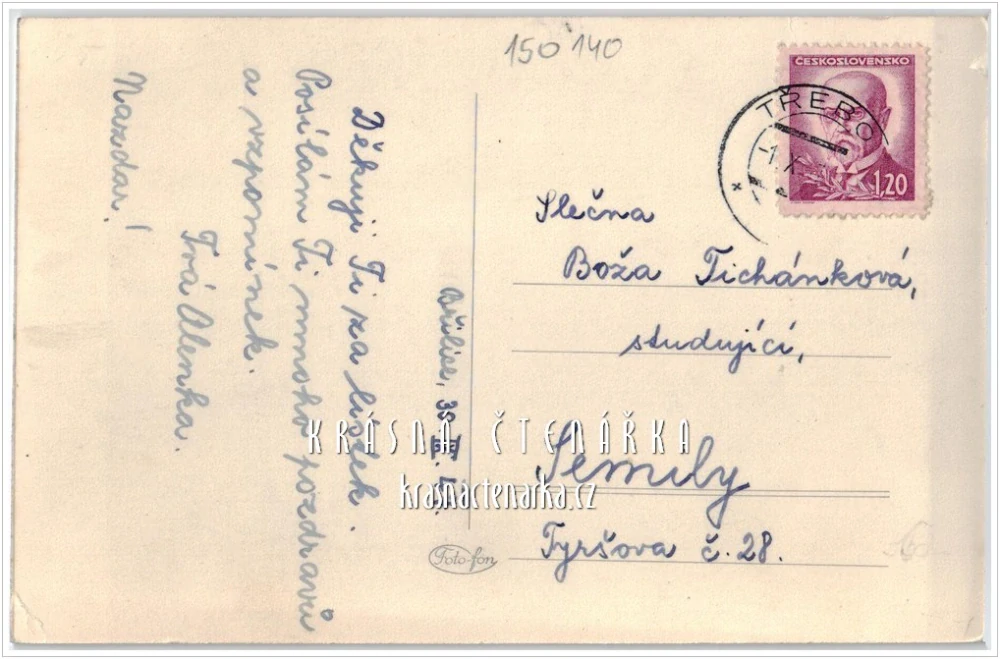 150 140
ČESKOSLOVENSKO
1,20
TŘEBO
Břilice, 30.
Děkuji Ti za lístek.
Posílám Ti mnoho pozdravů
a vzpomínek.
Tvá Alenka.
Nazdar!
Slečna
Boža Tichánková,
studující,
Semily
Tyršova č. 28.
Foto-fon
KRÁSNÁ ČTENÁŘKA
krasnactenarka.cz